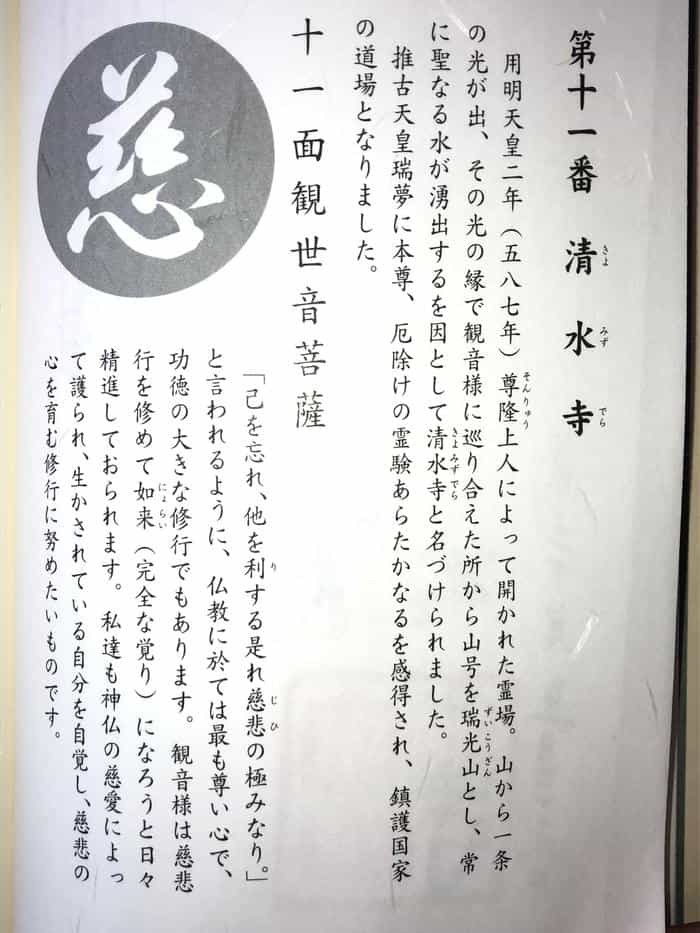 第十一番 清水寺
用明天皇二年（五八七年）尊隆上人によって開かれた霊場。山から一条
の光が出、その光の縁で観音様に巡り合えた所から山号を瑞光山とし、常
に聖なる水が湧出するを因として清水寺と名づけられました。
推古天皇瑞夢に本尊、厄除けの霊験あらたかなるを感得され、鎮護国家
の道場となりました。
十一面観世音菩薩
慈
「己を忘れ、他を利する是れ慈悲の極みなり。」
と言われるように、仏教に於ては最も尊い心で、
功徳の大きな修行でもあります。観音様は慈悲
行を修めて如来（完全な覚り）になろうと日々
精進しておられます。私達も神仏の慈愛によっ
て護られ、生かされている自分を自覚し、慈悲の
心を育む修行に努めたいものです。